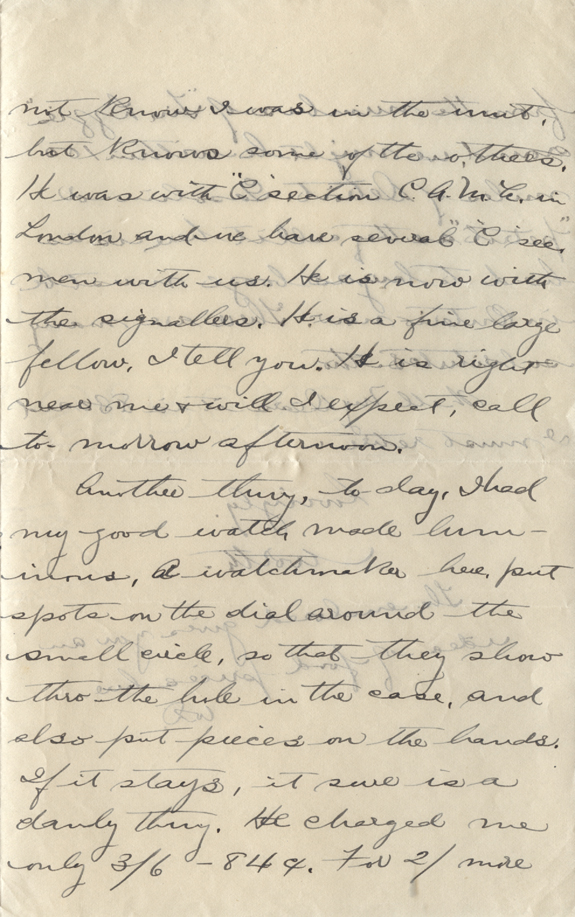 not know I was in the unit,
but knows some of the others.
He was with "C" section C.A.M.C. in
London and we have several "C" sec.
men with us. He is now with
the signallers. He is a fine large
fellow, I tell you. He is right
near me & will I expect, call
to-morrow afternoon.
Another thing, to day, I had
my good watch made lum-
inous, A watchmaker here, put
spots on the dial around the
small circle, so that they show
thro the hole in the case, and
also put pieces on the hands.
If it stays, it sure is a
dandy thing. He charged me
only 3/6 - 84¢. For 2/ more